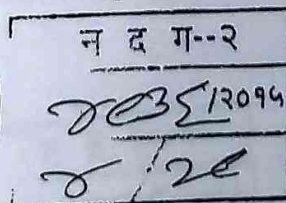 न द ग--२
४९३६/२०१५
४ / २९